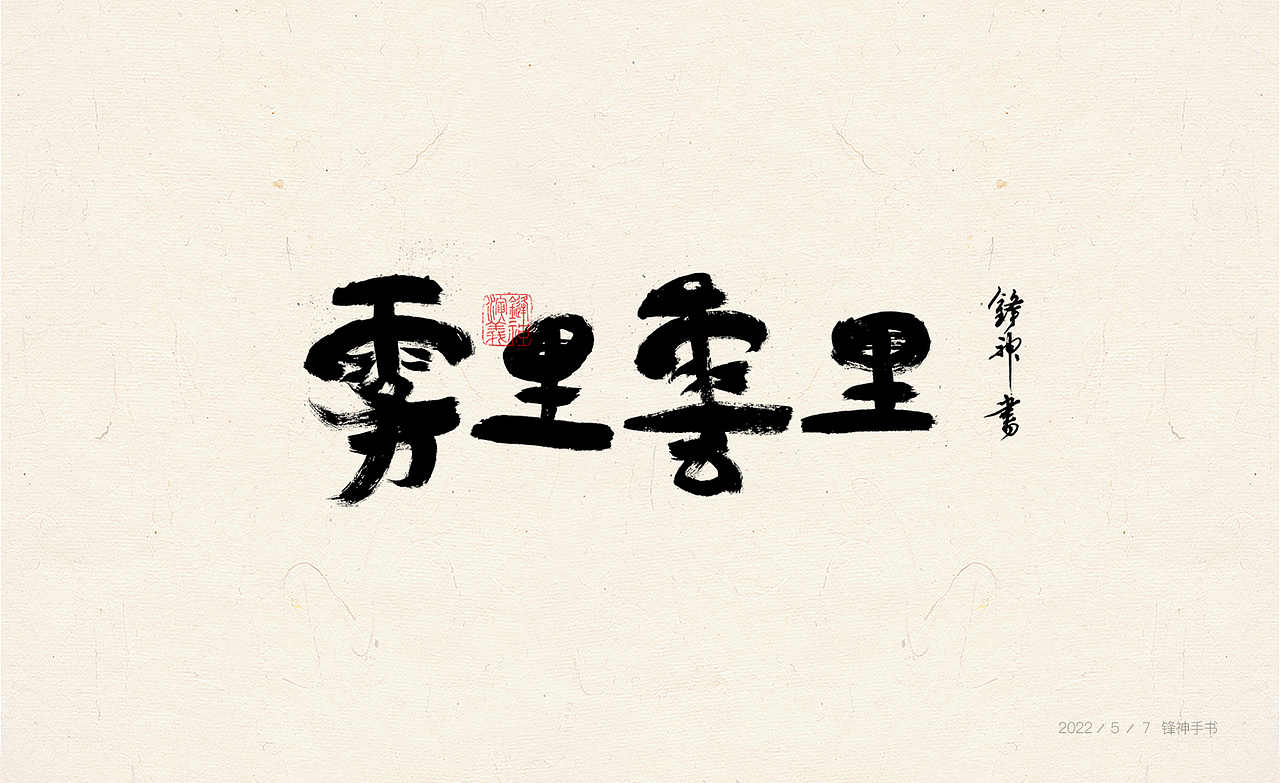 雾里雲里
鋒神演義
鋒神書
2022 / 5 / 7 锋神手书